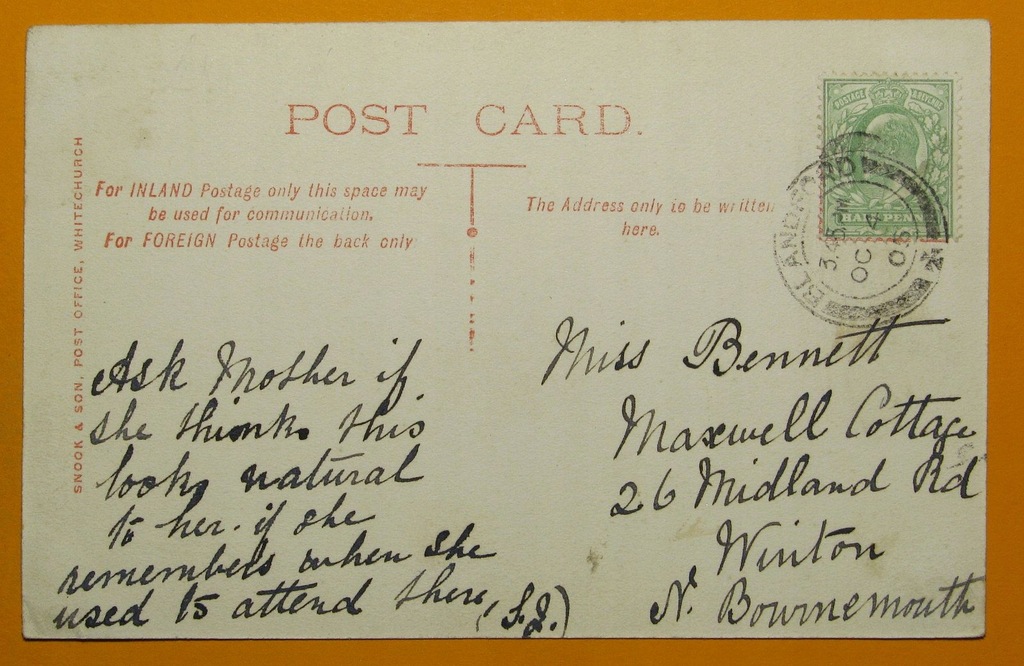 POST CARD.
For INLAND Postage only this space may
be used for communication.
For FOREIGN Postage the back only
The Address only to be written
here.
SNOOK & SON, POST OFFICE, WHITECHURCH
POSTAGE REVENUE
HALF PENNY
BLANDFORD
3.45 PM
OC 4
05
Ask Mother if
she thinks this
looks natural
to her. if she
remembers when she
used to attend there
Miss Bennett
Maxwell Cottage
26 Midland Rd
Winton
Nr. Bournemouth